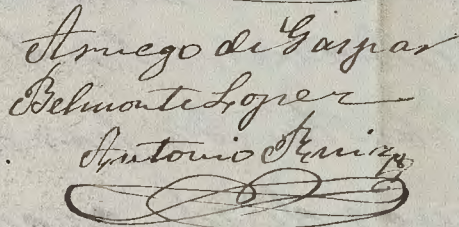 A ruego de Gaspar
Belmonte Lopez
Antonio Ruiz